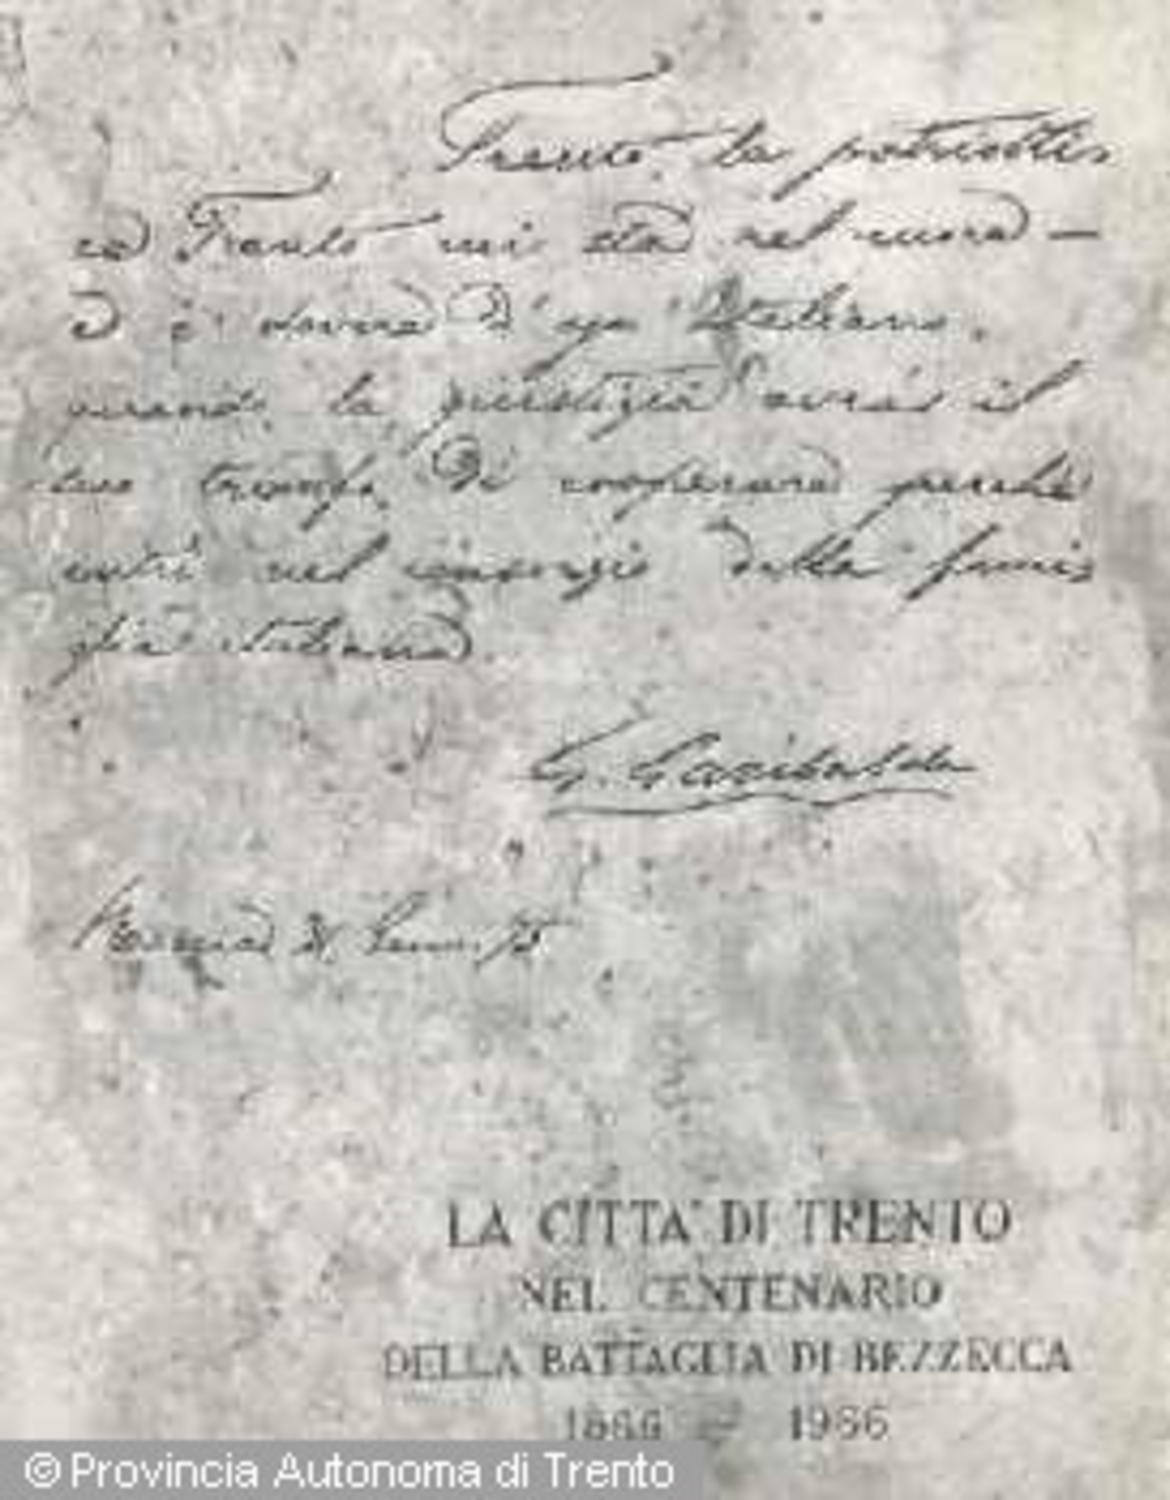 Trento, la patriotti-
ca Trento mi sta nel cuore —
e è dovere d'ogni Italiano,
quando la giustizia avrà il
suo trionfo, di cooperare perchè
entri nel consorzio della fami-
glia italiana.
G. Garibaldi
LA CITTA' DI TRENTO
NEL CENTENARIO
DELLA BATTAGLIA DI BEZZECCA
1866 - 1966
© Provincia Autonoma di Trento